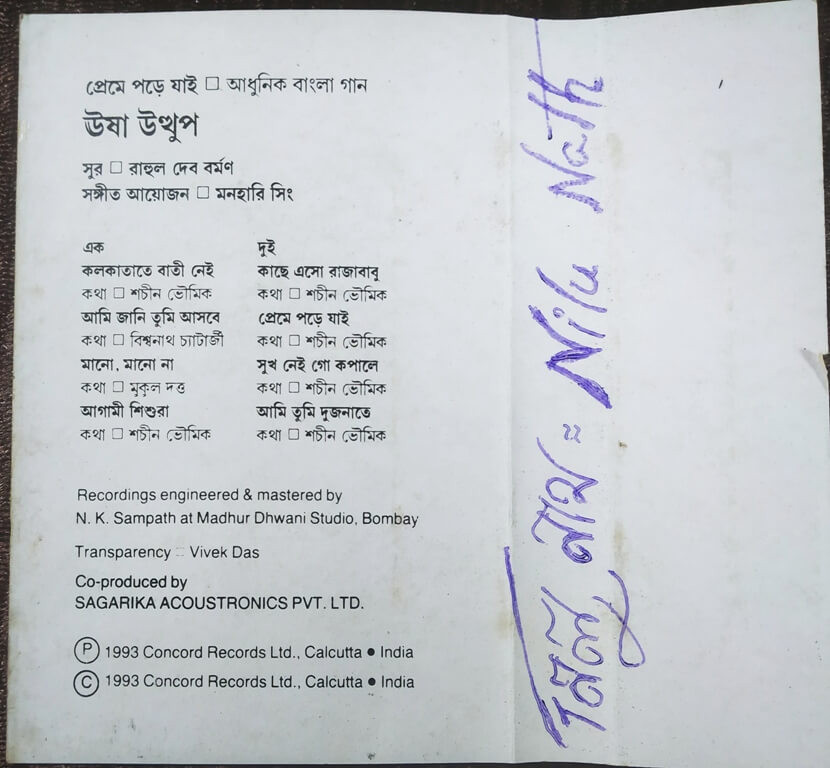 প্রেমে পড়ে যাই □ আধুনিক বাংলা গান
ঊষা উত্থুপ
সুর □ রাহুল দেব বর্মণ
সঙ্গীত আয়োজন □ মনহারি সিং
এক
কলকাতাতে বাতী নেই
কথা □ শচীন ভৌমিক
আমি জানি তুমি আসবে
কথা □ বিশ্বনাথ চ্যাটার্জী
মানো, মানো না
কথা □ মুকুল দত্ত
আগামী শিশুরা
কথা □ শচীন ভৌমিক
দুই
কাছে এসো রাজাবাবু
কথা □ শচীন ভৌমিক
প্রেমে পড়ে যাই
কথা □ শচীন ভৌমিক
সুখ নেই গো কপালে
কথা □ শচীন ভৌমিক
আমি তুমি দুজনাতে
কথা □ শচীন ভৌমিক
Recordings engineered & mastered by
N. K. Sampath at Madhur Dhwani Studio, Bombay
Transparency □ Vivek Das
Co-produced by
SAGARIKA ACOUSTRONICS PVT. LTD.
Ⓟ 1993 Concord Records Ltd., Calcutta ● India
© 1993 Concord Records Ltd., Calcutta ● India
নাথ = Nilu Nath